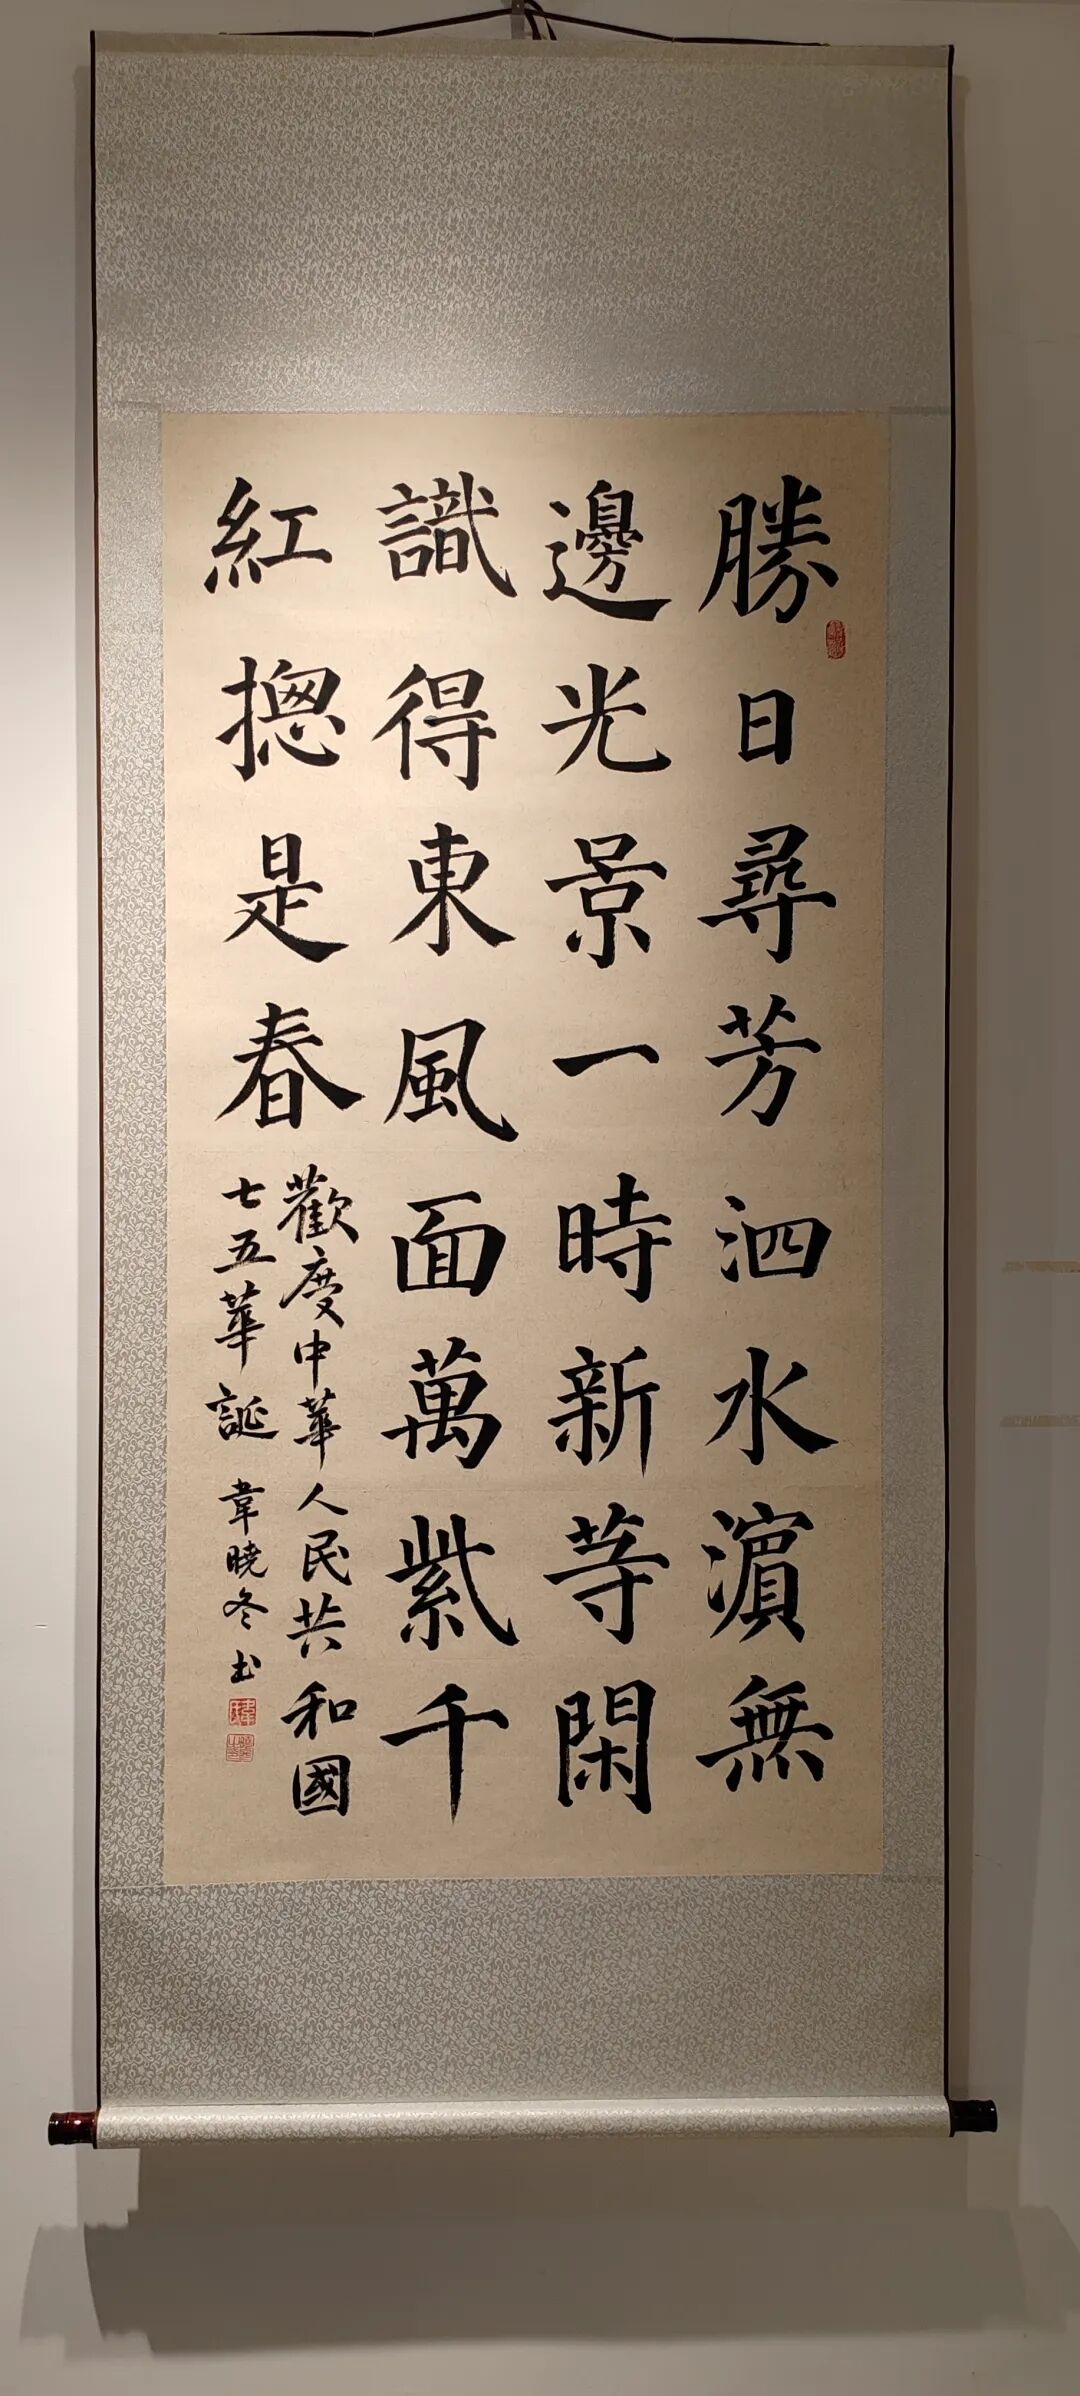 勝日尋芳泗水濵無
邊光景一時新等閑
識得東風面萬紫千
紅摠是春
歡慶中華人民共和國
七五華誕 韋曉冬书